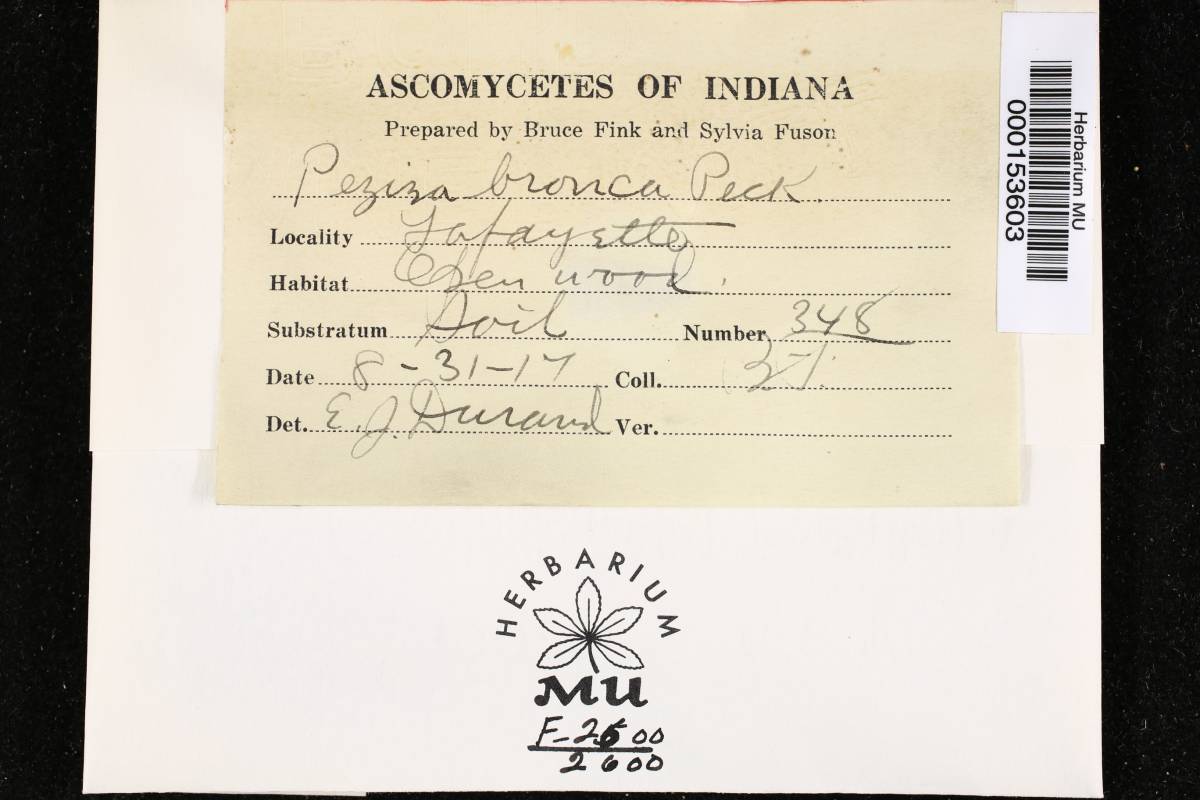 ASCOMYCETES OF INDIANA
Prepared by Bruce Fink and Sylvia Fuson
Peziza bronca Peck.
Locality Lafayette
Habitat Open wood.
Substratum Soil Number 348
Date 8-31-17 Coll.
Det. E. J. Durand Ver.
Herbarium MU
000153603
HERBARIUM
MU
F-2500
2600